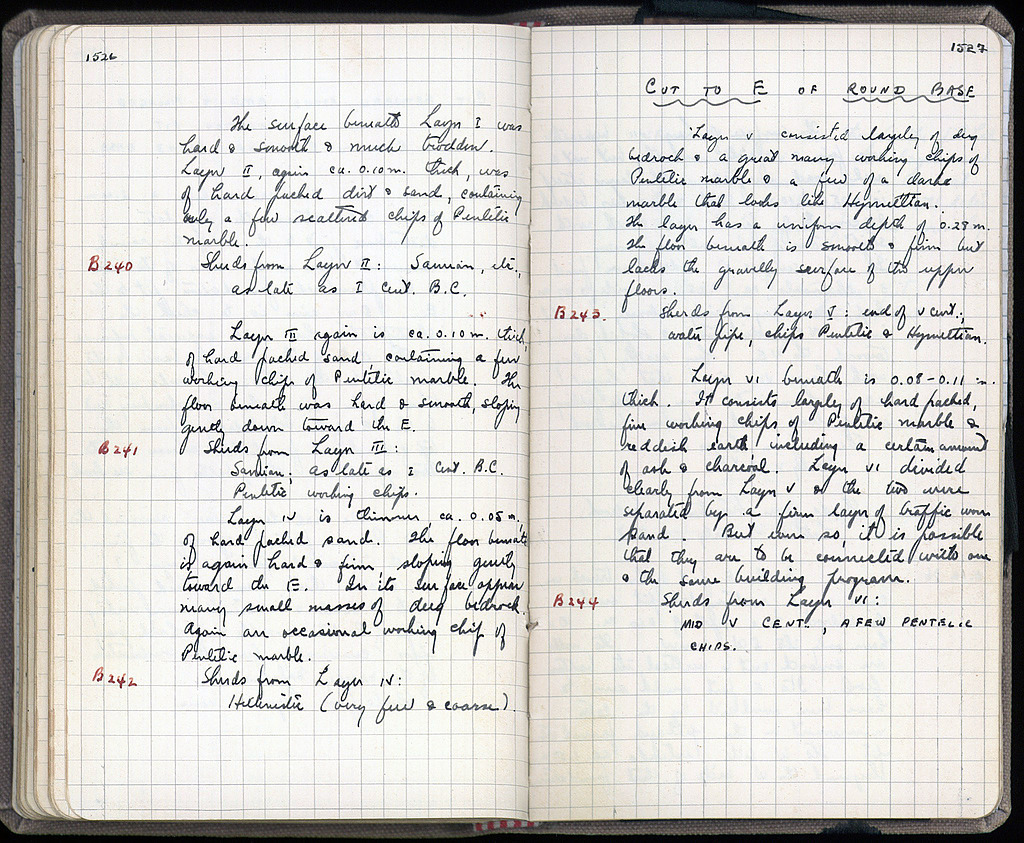 1526
The surface beneath Layer I was
hard & smooth & much trodden.
Layer II, again ca. 0.10 m. thick, was
of hard packed dirt & sand, containing
only a few scattered chips of Pentelic
marble.
B 240 Sherds from Layer II: Samian, etc.,
as late as I cent. B.C.
Layer III again is ca. 0.10 m. thick,
of hard packed sand, containing a few
working chips of Pentelic marble. The
floor beneath was hard & smooth, sloping
gently down toward the E.
B 241 Sherds from Layer III:
Samian; as late as I cent. B.C.
Pentelic working chips.
Layer IV is thinner ca. 0.05 m,
of hard packed sand. The floor beneath
is again hard & firm, sloping gently
toward the E. In its surface appear
many small masses of dug bedrock.
Again an occasional working chip of
Pentelic marble.
B 242 Sherds from Layer IV:
Hellenistic (very few & coarse).
1527
CUT TO E OF ROUND BASE
Layer V consisted largely of dug
bedrock & a great many working chips of
Pentelic marble & a few of a dark
marble that looks like Hymettian.
The layer has a uniform depth of 0.28 m.
The floor beneath is smooth & firm but
lacks the gravelly surface of the upper
floors.
B 243. Sherds from Layer V: end of V cent.,
water pipe, chips Pentelic & Hymettian.
Layer VI beneath is 0.08-0.11 m.
thick. It consists largely of hard packed,
fine working chips of Pentelic marble &
reddish earth including a certain amount
of ash & charcoal. Layer VI divided
clearly from Layer V & the two were
separated by a firm layer of traffic worn
sand. But even so, it is possible
that they are to be connected with one
& the same building program.
B 244 Sherds from Layer VI:
MID V CENT., A FEW PENTELIC
CHIPS.